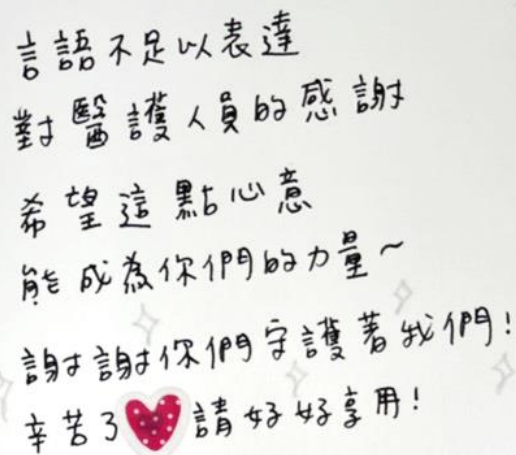 言語不足以表達
對醫護人員的感謝
希望這點心意
能成為你們的力量~
謝謝你們守護著我們!
辛苦了請好好享用!